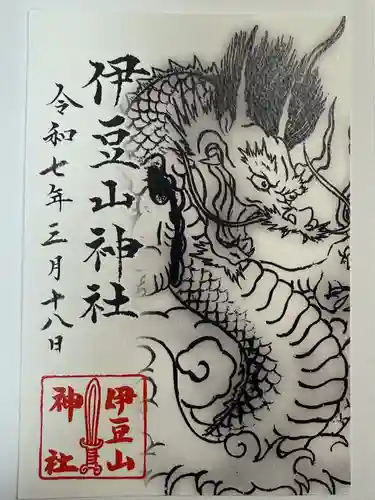 伊豆山神社
令和七年三月十八日
伊豆山
神社